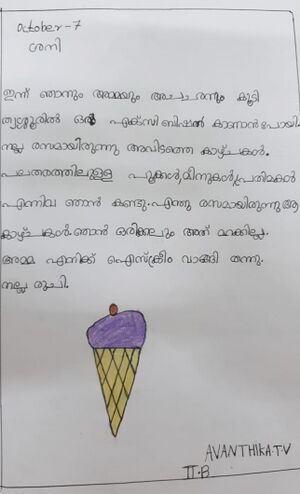 October-7
ശനി
ഇന്ന് ഞാനും അമ്മയും അച്ചച്ചനും കൂടി
തൃശ്ശൂരിൽ ഒരു എക്സിബിഷൻ കാണാൻ പോയി.
നല്ല രസമായിരുന്നു അവിടത്തെ കാഴ്ചകൾ.
പലതരത്തിലുള്ള പൂക്കൾ,മീനുകൾ,പ്രതിമകൾ
എന്നിവ ഞാൻ കണ്ടു.എന്തു രസമായിരുന്നു ആ
കാഴ്ചകൾ.ഞാൻ ഒരിക്കലും അത് മറക്കില്ല.
അമ്മ എനിക്ക് ഐസ്ക്രീം വാങ്ങി തന്നു.
നല്ല രുചി.
AVANTHIKA.T.V
II.B